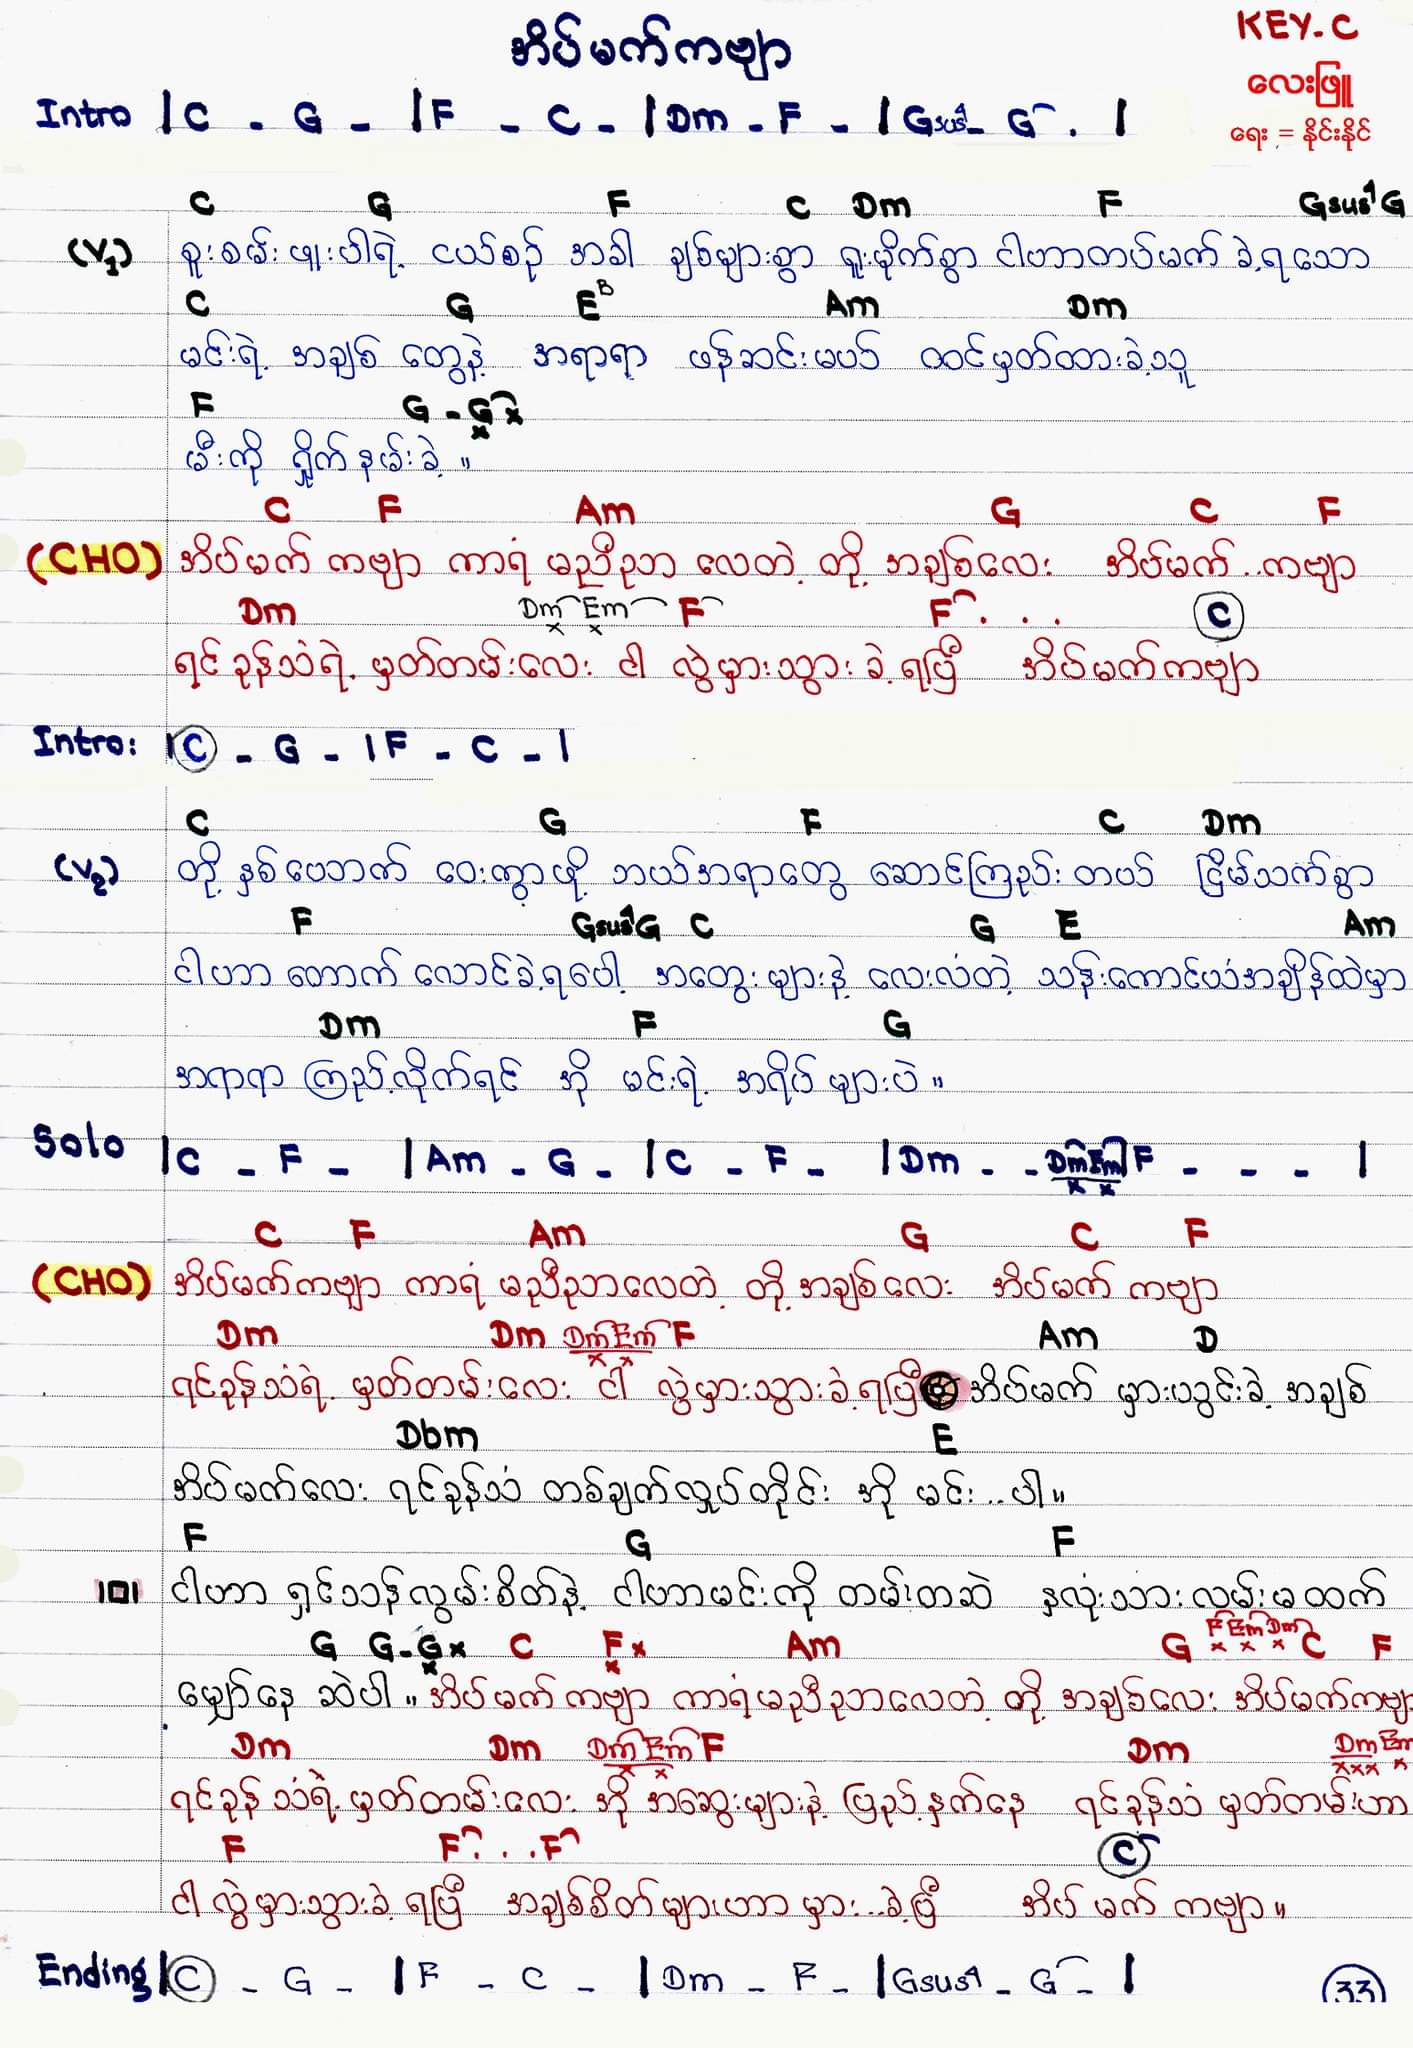 အိပ်မက်ကဗျာ
KEY-C
လေးဖြူ
ရေး = နိုင်းနိုင်
Intro |C - G - |F - C - |Dm - F - |Gsus4 - G . |
C G F C Dm F Gsus4 G
(V1) စူးစမ်းဖူးပါရဲ့ ငယ်စဉ် အခါ ချစ်များစွာ ရူးမိုက်စွာ ငါဟာတပ်မက် ခဲ့ရသော
C G E B Am Dm
မင်းရဲ့ အချစ် တွေနဲ့ အရာရာ ဖန်ဆင်းမယ် ထင်မှတ်ထားခဲ့သူ
F G - G x
မီးကို ရှိုက်နမ်းခဲ့ ။
C F Am G C F
(CHO) အိပ်မက် ကဗျာ ကာရံ မညီညာ လေတဲ့ တို့ အချစ်လေး အိပ်မက် ..ကဗျာ
Dm Dm Em F F . . . C
ရင်ခုန်သံရဲ့ မှတ်တမ်းလေး ငါ လွဲမှားသွားခဲ့ရပြီ အိပ်မက်ကဗျာ
Intro: |C - G - |F - C - |
C G F C Dm
(V2) တို့ နှစ်ယောက် ဝေးကွာဖို့ ဘယ်အရာတွေ ဆောင်ကြဉ်းတယ် ငြိမ်သက်စွာ
F Gsus4 G C G E Am
ငါဟာ တောက် လောင်ခဲ့ရပေါ့ အတွေးများနဲ့ လေးလံတဲ့ သန်းကောင်ယံအချိန်ထဲမှာ
Dm F G
အရာရာ ကြည့်လိုက်ရင် အို မင်းရဲ့ အရိပ်များပဲ ။
Solo |C - F - |Am - G - |C - F - |Dm - - Dm Em |F - - - |
C F Am G C F
(CHO) အိပ်မက်ကဗျာ ကာရံ မညီညာလေတဲ့ တို့ အချစ်လေး အိပ်မက် ကဗျာ
Dm Dm Dm Em F Am D
ရင်ခုန်သံရဲ့ မှတ်တမ်းလေး ငါ လွဲမှားသွားခဲ့ရပြီ အိပ်မက် မှားယွင်းခဲ့ အချစ်
Dbm E
အိပ်မက်လေး ရင်ခုန်သံ တစ်ချက်လှုပ်တိုင်း အို မင်း..ပါ ။
F G F
ငါဟာ ရှင်သန်လွမ်းစိတ်နဲ့ ငါဟာမင်းကို တမ်းတဆဲ နှလုံးသားလမ်းမထက်
G G - G x C F x Am G F Em Dm C F
မျှော်နေ ဆဲပါ ။ အိပ်မက် ကဗျာ ကာရံမညီညာလေတဲ့ တို့ အချစ်လေး အိပ်မက်ကဗျာ
Dm Dm Dm Em F Dm Dm Em
ရင်ခုန်သံရဲ့ မှတ်တမ်းလေး အို အဆွေးများနဲ့ ပြည့်နှက်နေ ရင်ခုန်သံ မှတ်တမ်းဟာ
F F . . . F C
ငါ လွဲမှားသွားခဲ့ရပြီ အချစ်စိတ်များဟာ မှား..ခဲ့ပြီ အိပ် မက် ကဗျာ ။
Ending |C - G - |F - C - |Dm - F - |Gsus4 - G - |
33